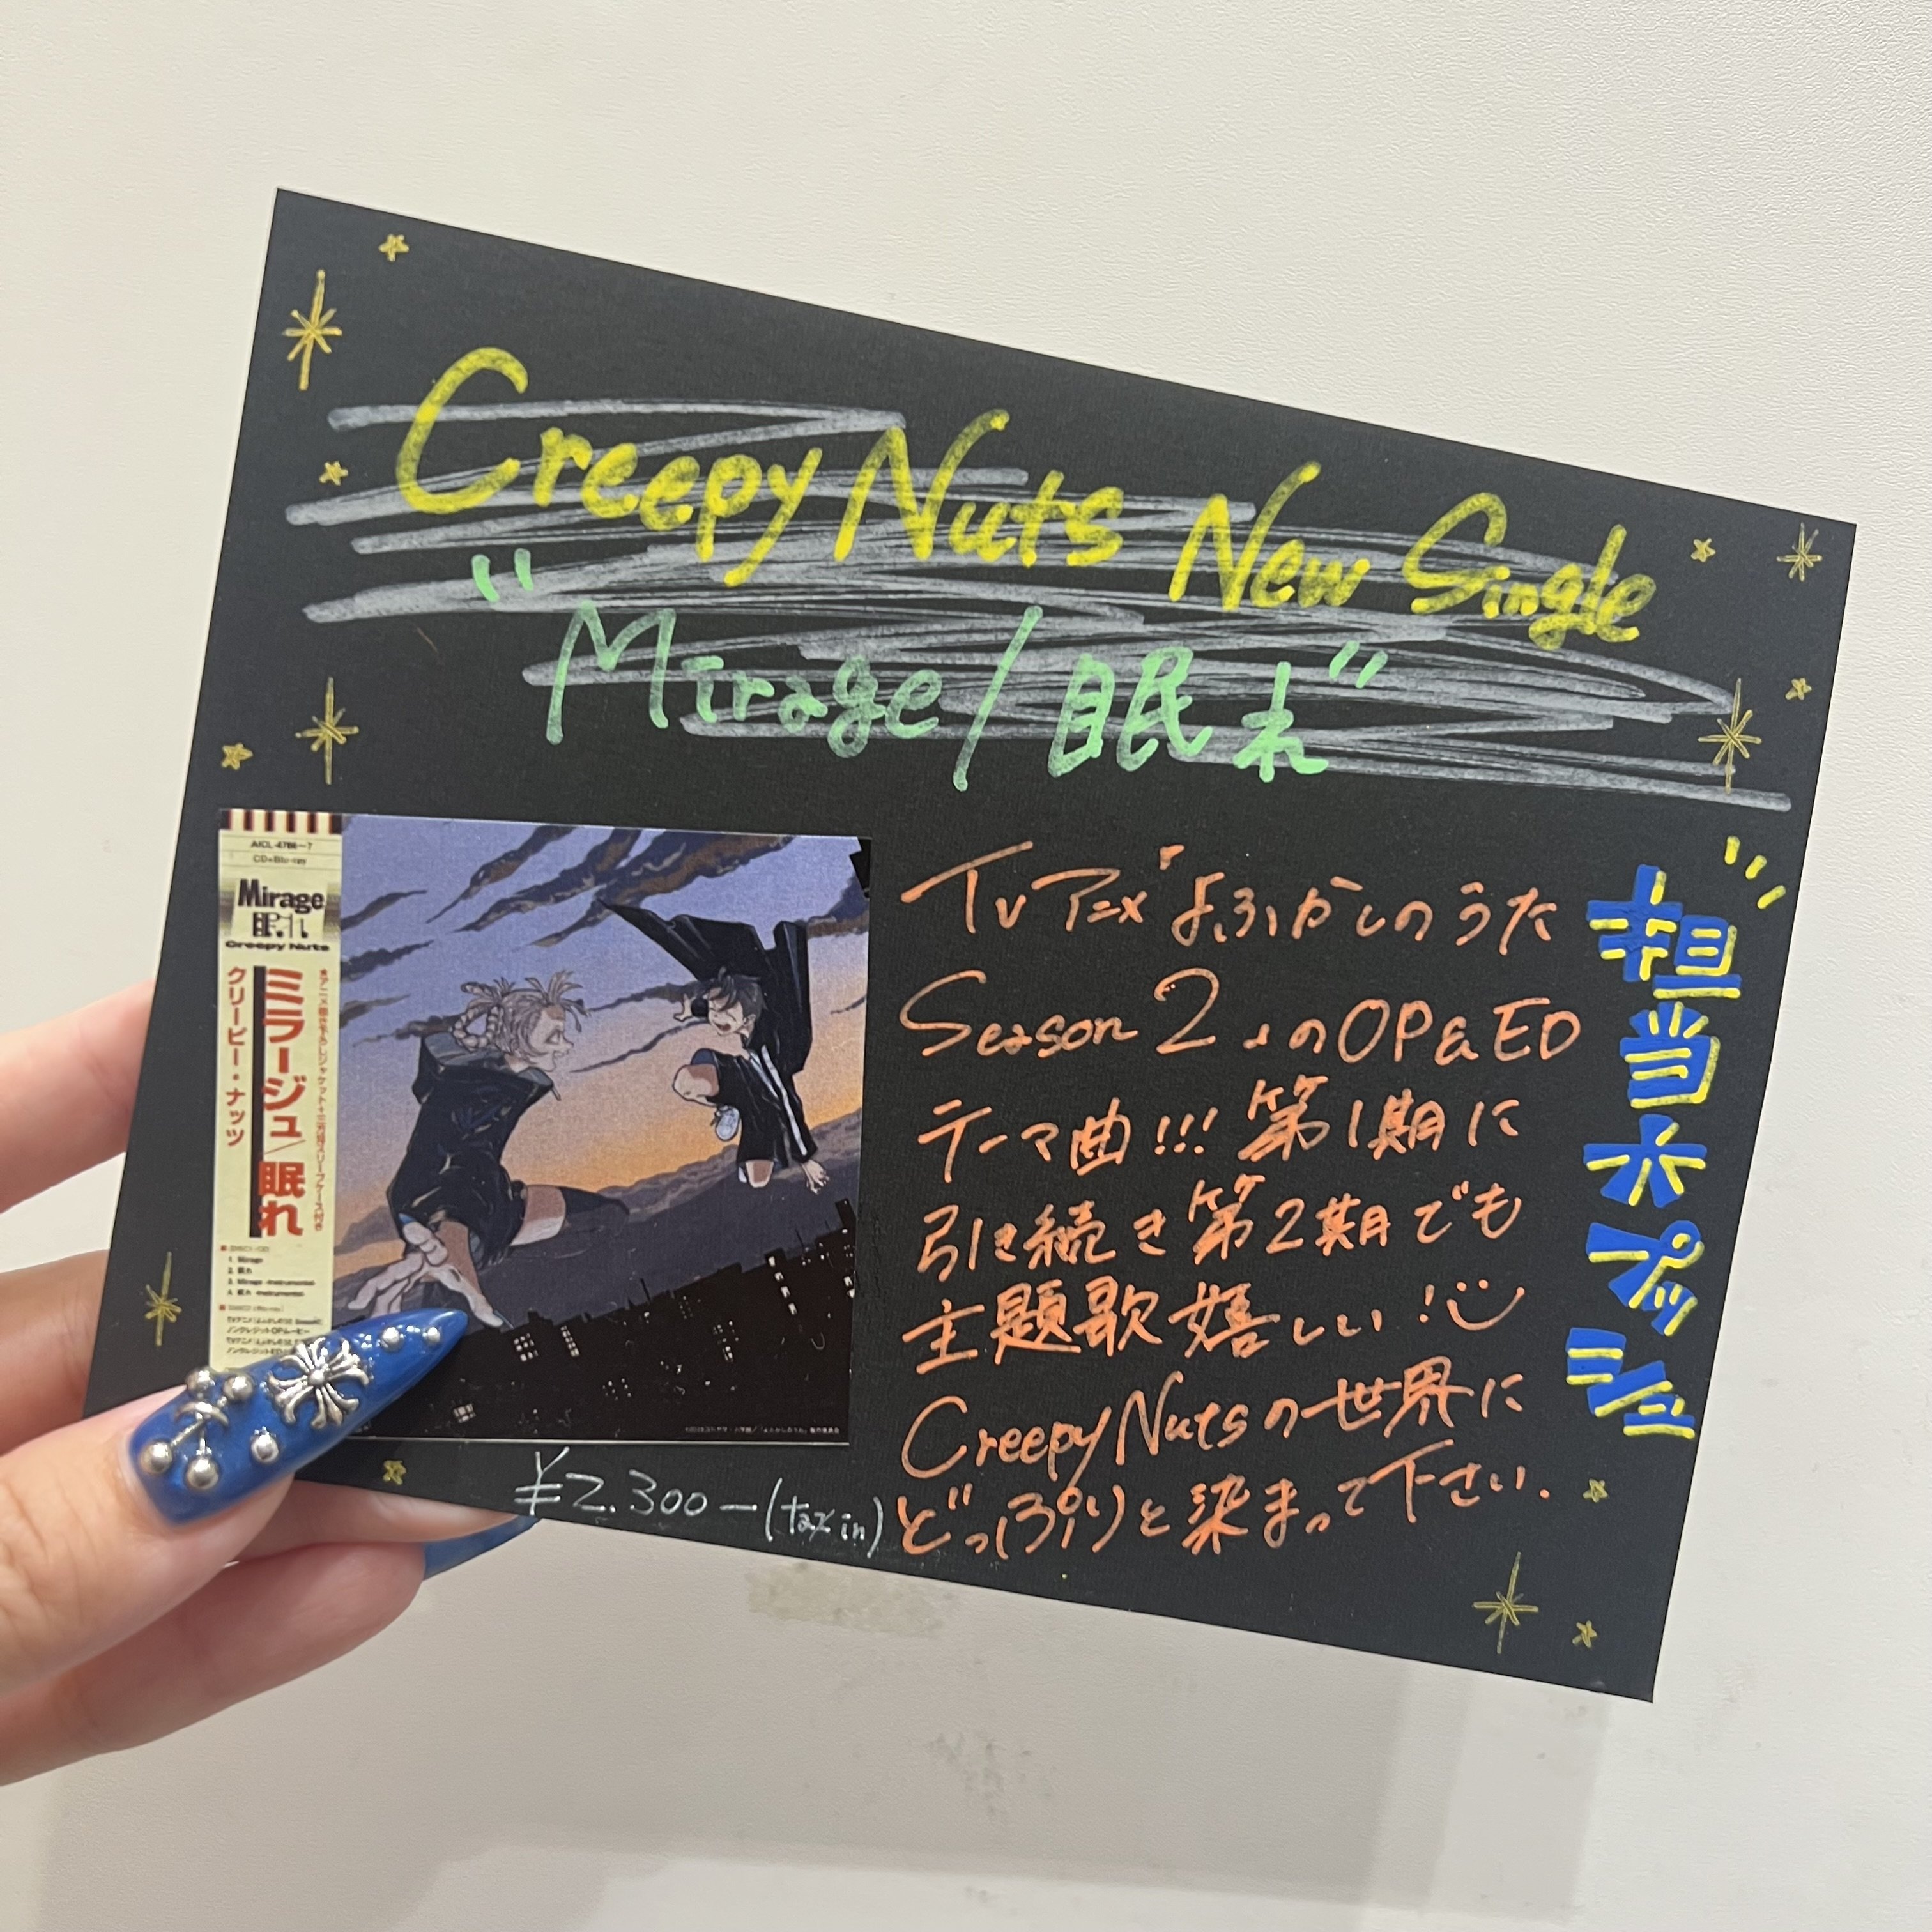 Creepy Nuts New Single
"Mirage/眠れ"
AICL-4786~7
CD+Blu-ray
Mirage
眠れ
Creepy Nuts
ミラージュ/眠れ
クリーピー・ナッツ
1. Mirage
2. 眠れ
3. Mirage -Instrumental-
4. 眠れ -Instrumental-
TVアニメ『よふかしのうた
Season2』のOP&ED
テーマ曲!!!第1期に
引き続き第2期でも
主題歌嬉しい!
Creepy Nutsの世界に
どっぷりと染まって下さい.
¥2.300-(tax in)
担当大プッシュ